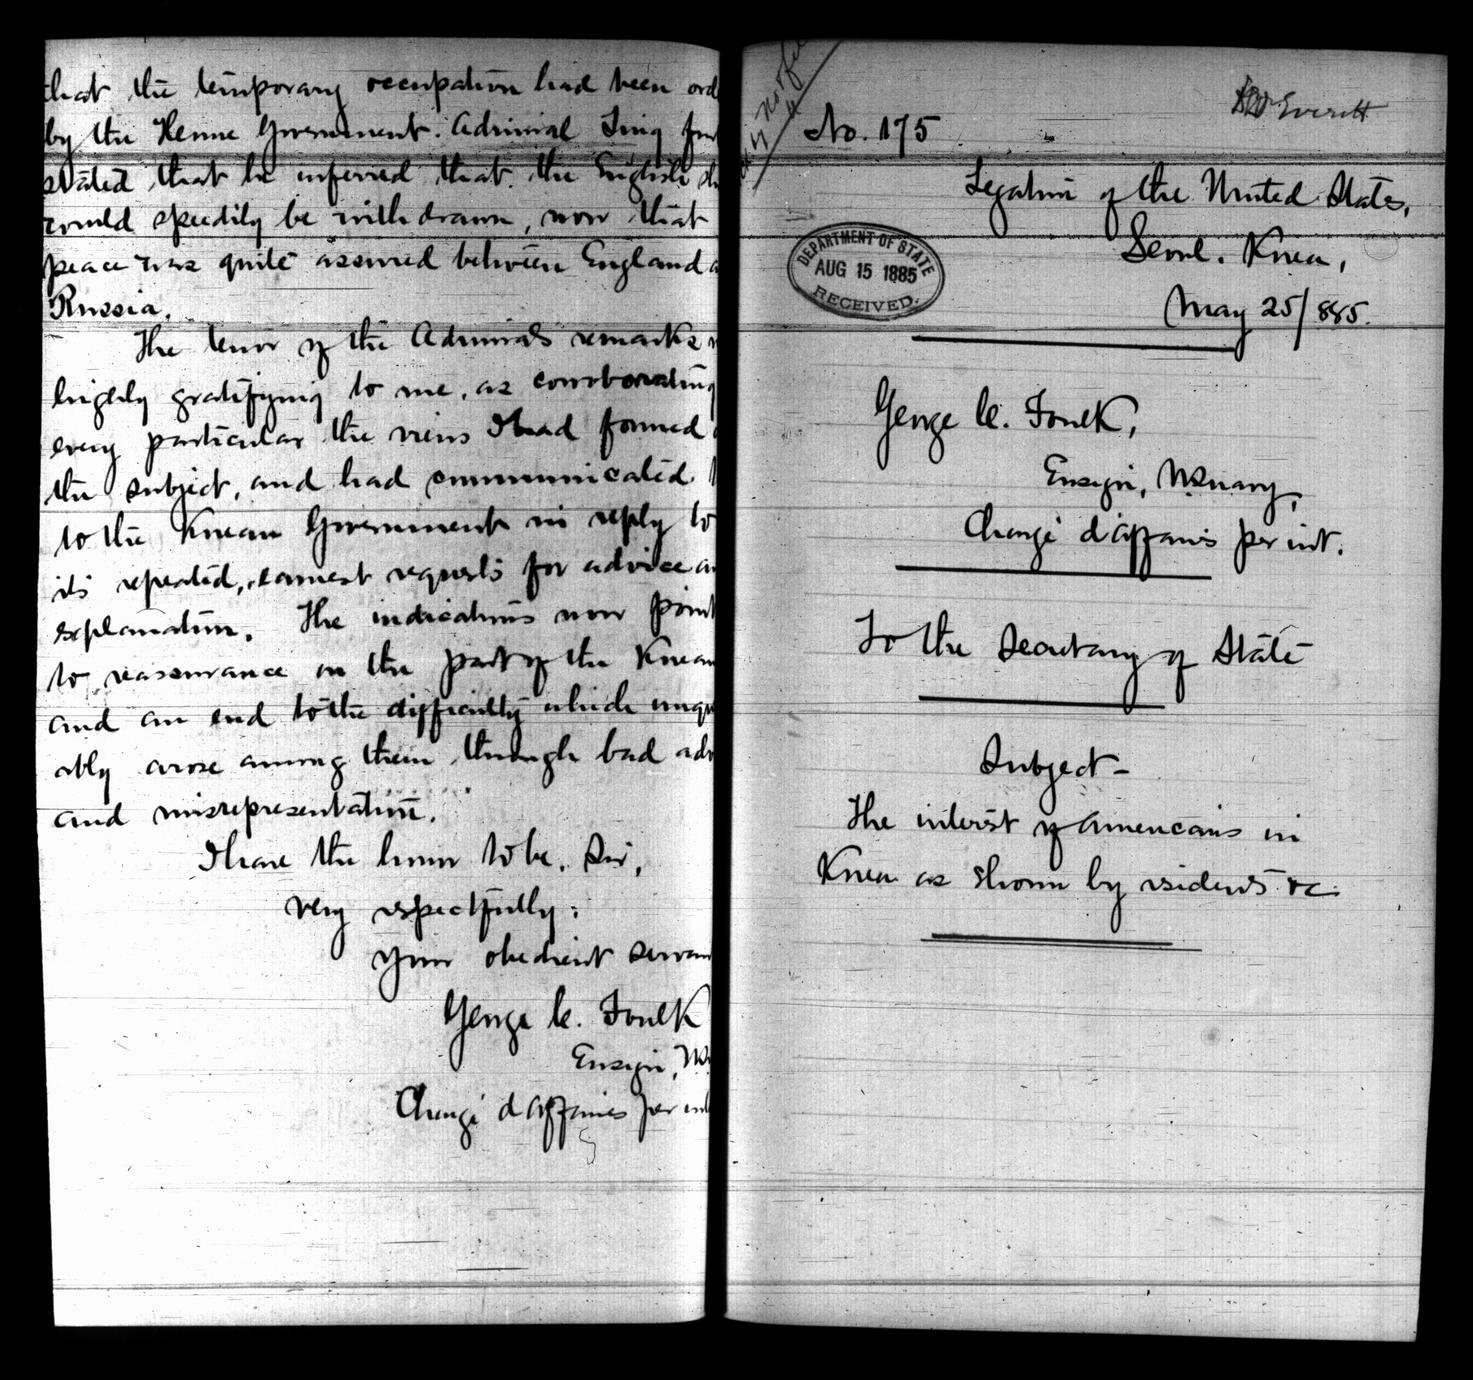 that the temporary occupation had been ord
by the Home Government. Admiral Ting fur
stated that he inferred that the English sh
would speedily be withdrawn, now that
peace was quite assured between England a
Russia.
The tenor of the Admiral's remarks w
highly gratifying to me, as corroborating
every particular the views I had formed
the subject, and had communicated
to the Korean Government in reply to
its repeated, earnest requests for advice an
explanation. The indications now point
to reassurance on the part of the Korean
and an end to the difficulty which unqu
ably arose among them through bad adv
and misrepresentation.
I have the honor to be, Sir,
very respectfully:
your obedient servan
George C. Foulk
Ensign,
Chargé d'affaires per int
No. 175
Everett
Legation of the United States,
Seoul. Korea,
May 25/885.
DEPARTMENT OF STATE
AUG 15 1885
RECEIVED.
George C. Foulk,
Ensign, U.S. Navy,
Chargé d'affaires per int.
To the Secretary of State
Subject-
The interest of Americans in
Korea as shown by residents &c.